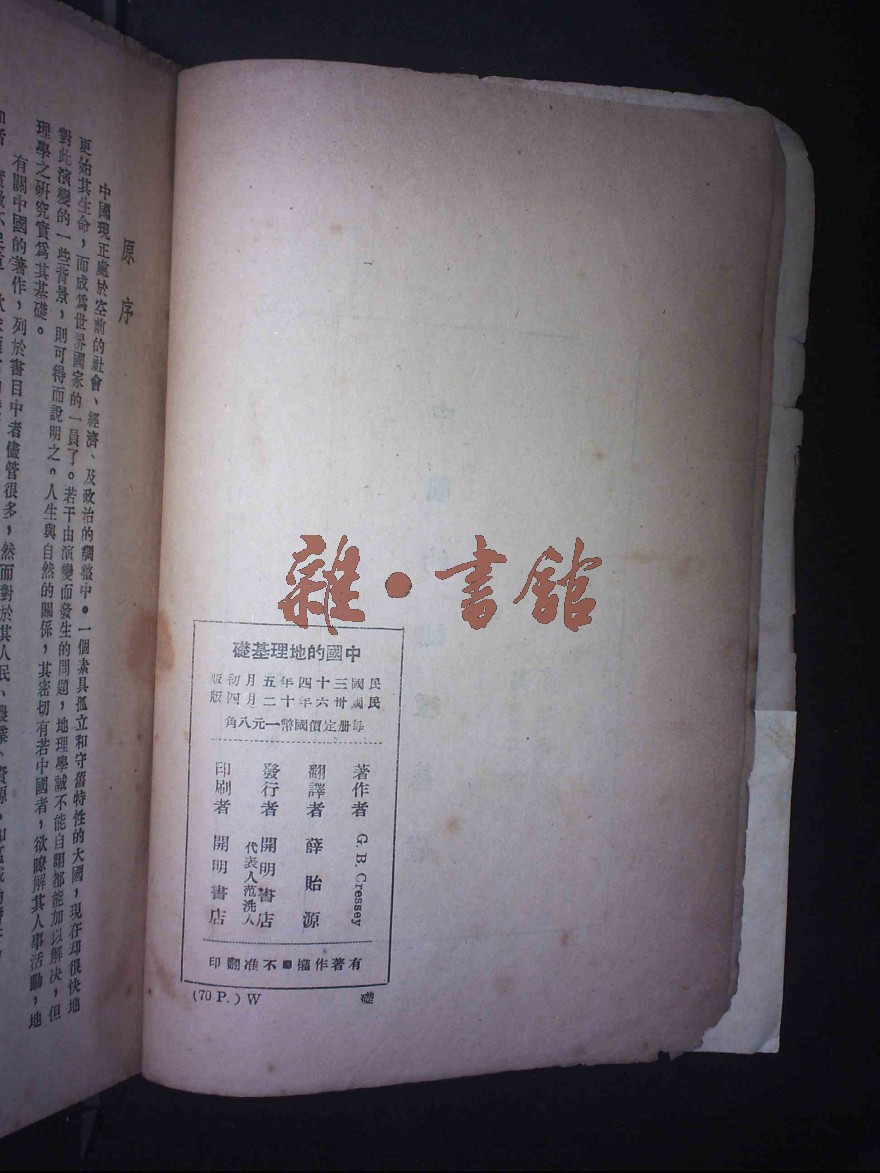 雜·書館
中國的地理基礎
民國三十四年五月初版
民國卅六年十二月四版
每册定價國幣一元八角
著作者 G. B. Cressey
翻譯者 薛貽源
發行者 開明書店
代表人范洗人
印刷者 開明書店
有著作權不准翻印
(70 P.) W 礎
原序
中國現正處於空前的社會、經濟、及政治的調整中。一個素具孤立和守舊特性的大國，現在却很快地
更始其生命，而成爲世界國家的一員了。若干由演變而發生的問題，地理學誠不能自詡都能加以解決，但
對此演變的一些背景，則可得而說明之。人生與自然的關係，其密切有若中國者，欲瞭解其人事活動，地
理學之研究實爲其基礎。
有關中國的著作，列於書目中者儘管很多，然而對於其人民、農業、資源、